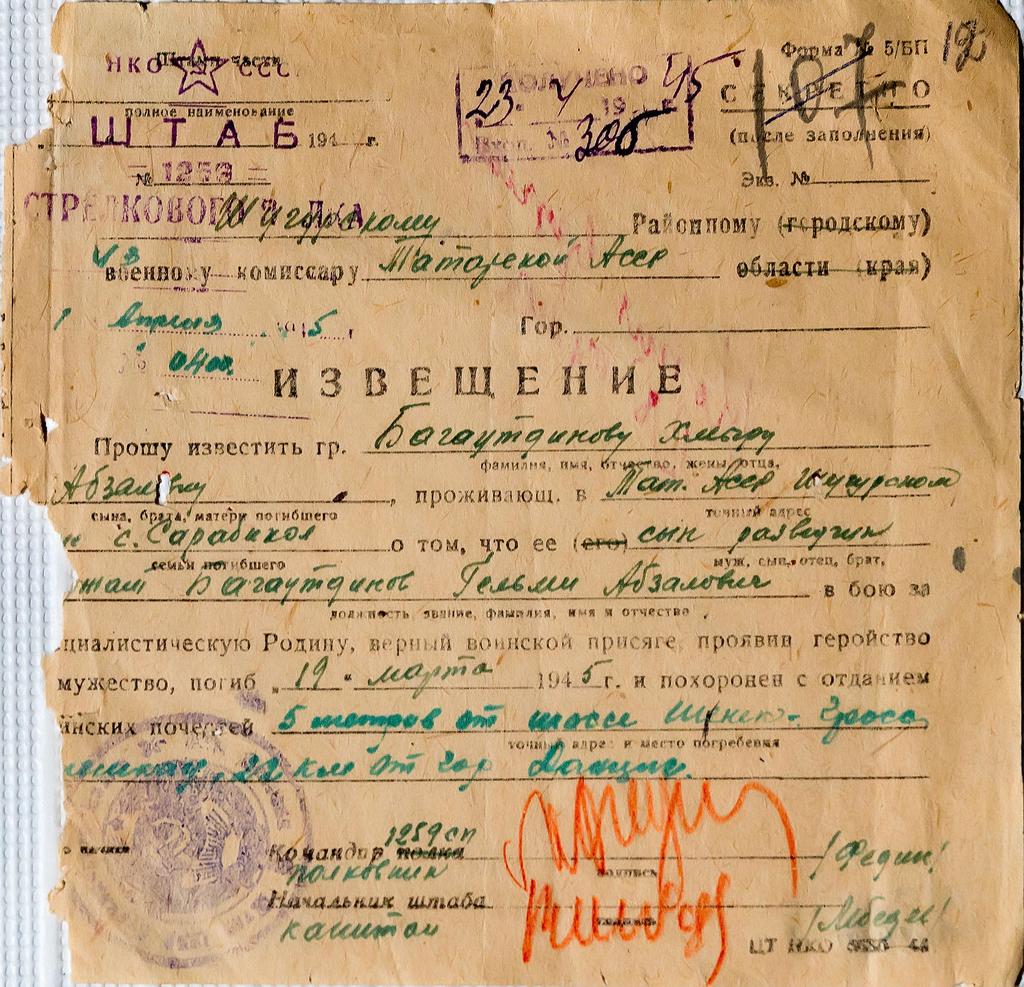 НКО СССР
Штамп части
полное наименование
ШТАБ 194 г.
№ 1259
СТРЕЛКОВОГО
ПОЛУЧЕНО
23. 19 45
Вход. № 306
Форма № 5/БП
СЕКРЕТНО
(после заполнения)
Экз. №
107
Шугурскому Районному (городскому)
военному комиссару Татарской Асср области (края)
Апреля 1945 г. Гор.
ИЗВЕЩЕНИЕ
Прошу известить гр. Багаутдинову
фамилия, имя, отчество, жены, отца,
Абзаловну, проживающ. в Тат. Асср Шугурском
сына, брата, матери погибшего точный адрес
с. Сарабикол о том, что ее (его) сын разведчик
семьи погибшего муж, сын, отец, брат,
Багаутдинов Гельми Абзалович в бою за
должность звание, фамилия, имя и отчество
циалистическую Родину, верный воинской присяге, проявив геройство
мужество, погиб „19" марта 1945 г. и похоронен с отданием
инских почестей 5 метров от шоссе
точный адрес и место погребения
22 км от гор Данциг.
1259 сп
Командир полка /Федин/
полковник подпись
Начальник штаба
капитан
ЦТ НКО